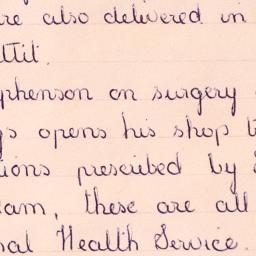 re also delivered in
ttit.
phenson on surgery
gs opens his shop t
ions prescribed by
eam, these are all
nal Health Service.